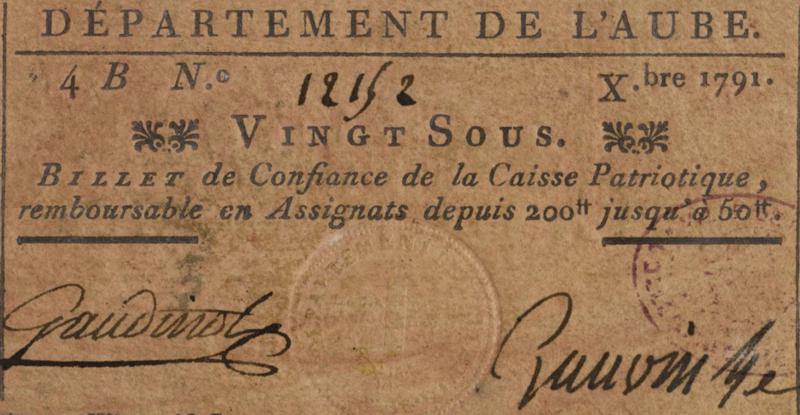 DÉPARTEMENT DE L'AUBE.
4 B N.º 12152 X.bre 1791.
VINGT SOUS.
BILLET de Confiance de la Caisse Patriotique,
remboursable en Assignats depuis 200tt jusqu'à 50tt.
Gaudinot